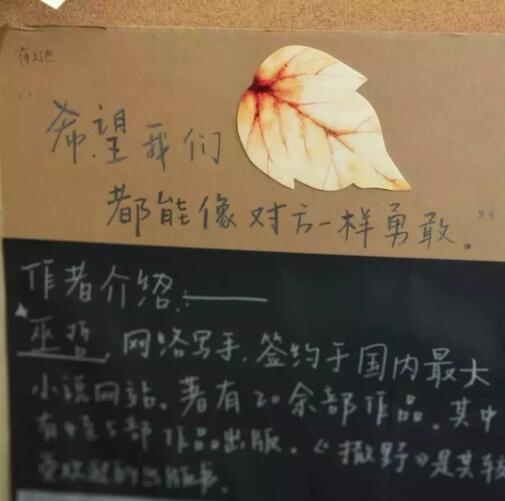 “希望我们
都能像对方一样勇敢。”
作者介绍：——
巫哲，网络写手，签约于国内最大
小说网站。著有20余部作品。其中
有4至5部作品出版。《撒野》是其较
受欢迎的出版书。